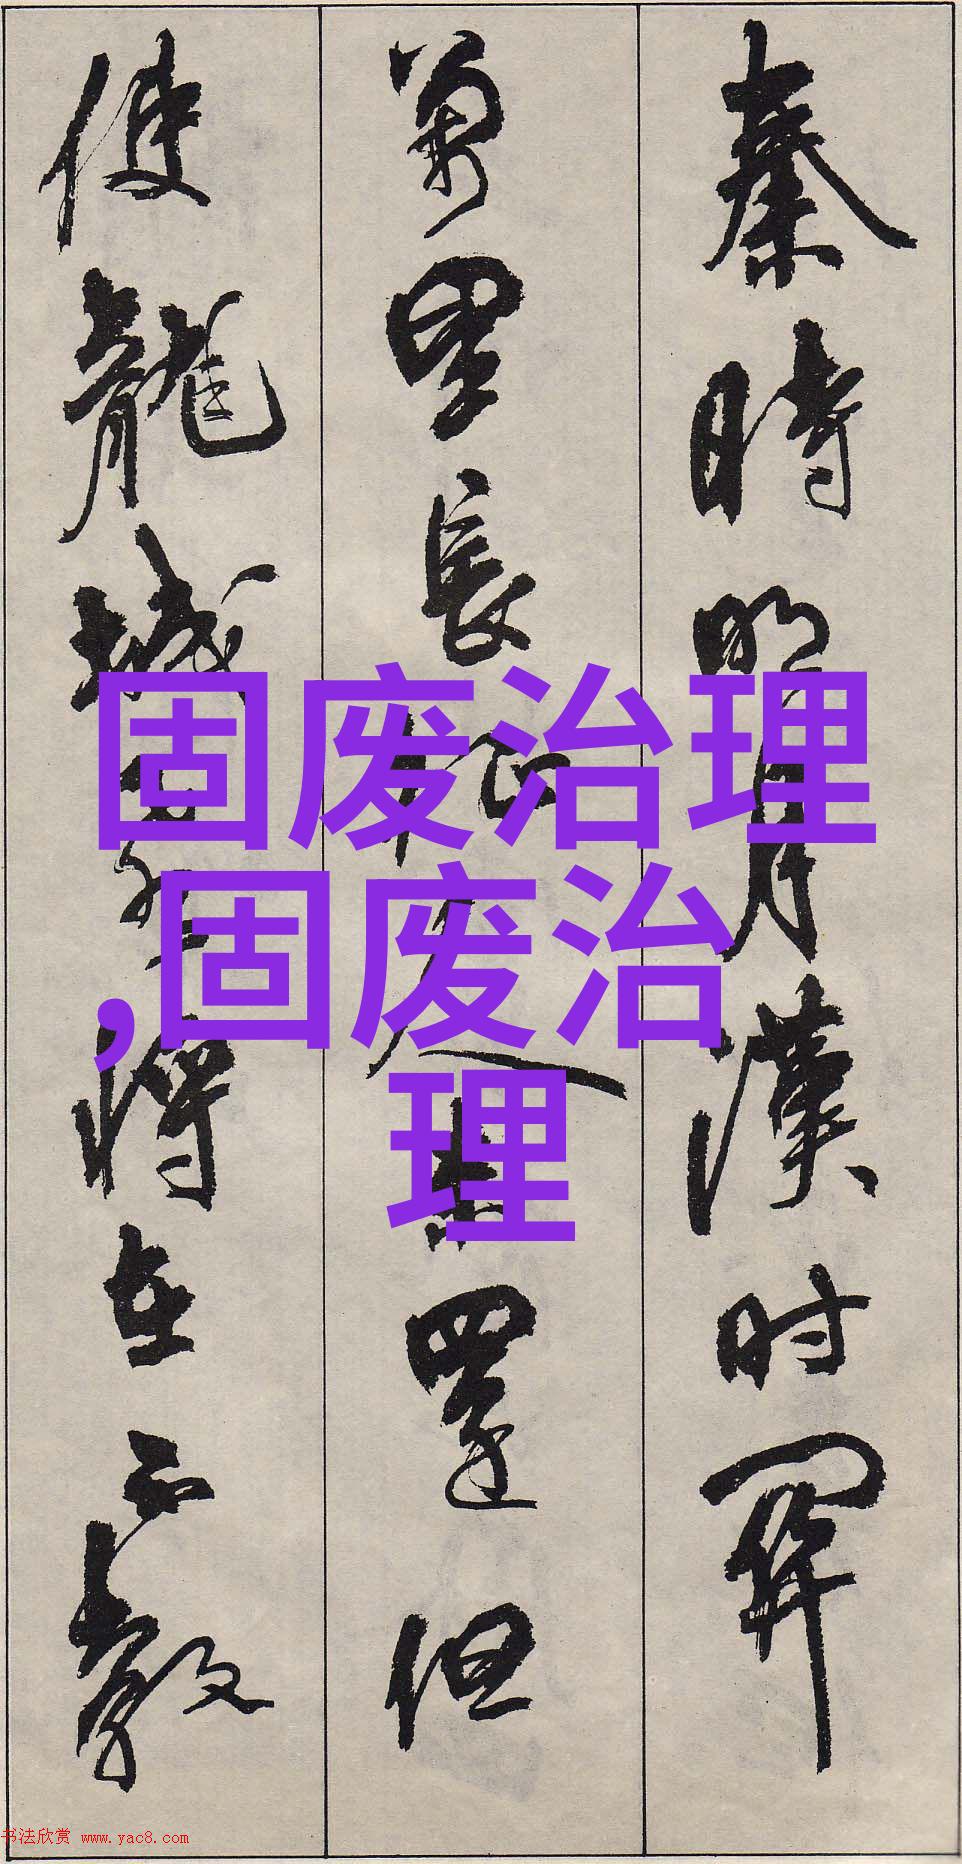 秦時明月漢时関
萬里長征人未還但
使龍城飛將在不教
固废治理
,固废治
理
书法欣赏 www.yac8.com